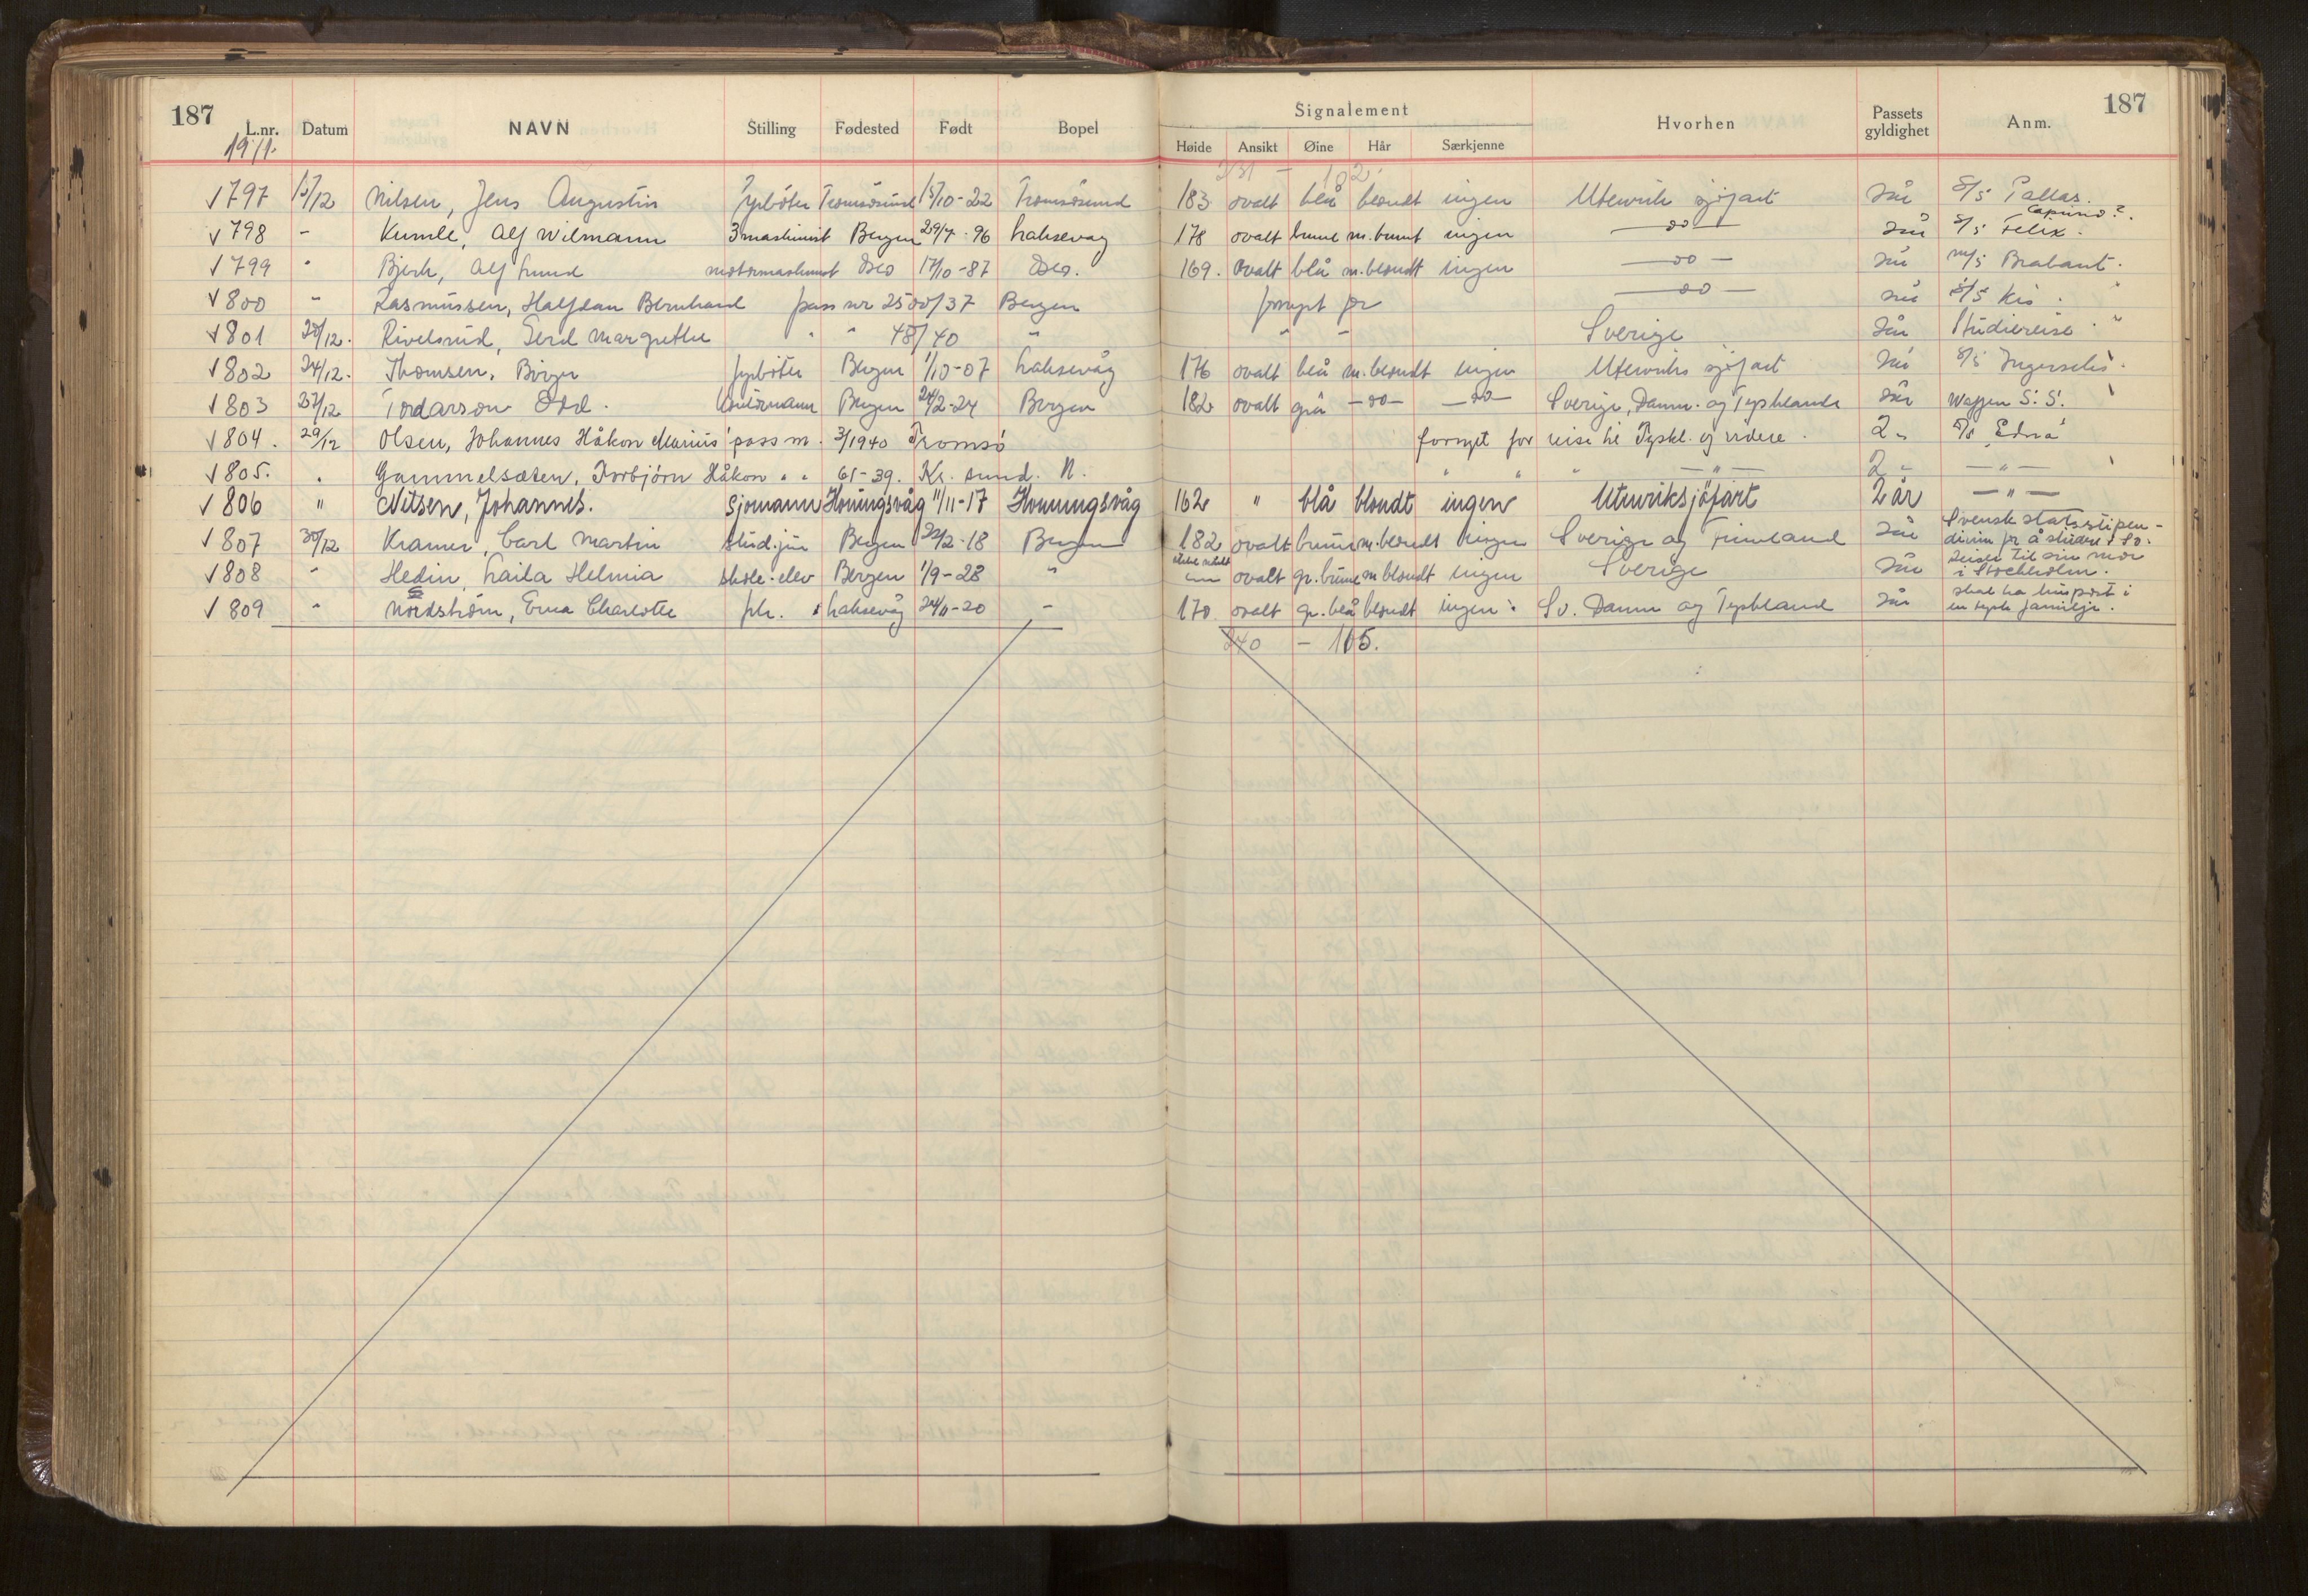 187 Signalement 187
L.nr. Datum NAVN Stilling Fødested Født Bopel Høide Ansikt Øine Hår Særkjenne Hvorhen Passets gyldighet Anm.
1941.
231 - 102.
797 15/12 Nilsen, Jens Augustin fyrböter Tromsösund 15/10-22 Tromsösund 183 ovalt blå blondt ingen Utenriks sjöfart 2 år S/S Pallas.
798 - Kumle, Alf Wilmann 3 maskinist Bergen 29/7-96 Laksevag 178 ovalt brune m. brunt ingen -do- 2 år S/S Felix.
799 " Bjerk, Alf Lund motormaskinist Oslo 17/10-87 Oslo. 169. ovalt blå m. blondt ingen -do- 2 år M/S Brabant.
800 " Rasmussen, Halfdan Bernhard pass nr 2500/37 Bergen fornyet for -do- 2 år S/S Kis.
801 20/12. Rivelsrud, Gerd Margrethe " " 48/40 " " - Sverige 2 år Studiereise.
802 24/12. Thomsen, Birger fyrböter Bergen 1/10-07 Laksevåg 176 ovalt blå m. blondt ingen Utenriks sjöfart 2 år S/S
803 27/12 Tordarson Odd. Bergen 24/2-24 Bergen 182 ovalt grå -do- -do- Sverige, Danm. og Tyskland 2 år Waffen S.S.
804. 29/12 Olsen, Johannes Håkon Marius pass nr. 3/1940 Tromsö fornyet for reise til Tyskl. og videre. 2 " S/S "Edna"
805. " Gammelsæten, Torbjörn Håkon " " 61-39. Kr. sund. N. " " " -"- 2 " -"-
806 " Nilsen, Johannes. Sjömann Honningsvåg 11/11-17 Honningsvåg 162 " blå blondt ingen Utenriksjöfart 2 år -"-
807 30/12 Kramer, Carl Martin stud. jur Bergen 22/2-18 Bergen 182 ovalt brune m. blondt ingen Sverige og Finland 2 år Svensk statsstipendium for å studere i Sv.
808 " Hedin, Laila Helmia skole-elev Bergen 1/9-28 " ovalt gr. brune m blondt ingen Sverige 2 år Reiser til sin mor i Stockholm.
809 " Nordström, Erna Charlotte frk. Laksevåg 24/11-20 - 170 ovalt gr. blå blondt ingen Sv. Danm og Tyskland 2 år skal ha huspost i en tysk familje.
240 - 105.